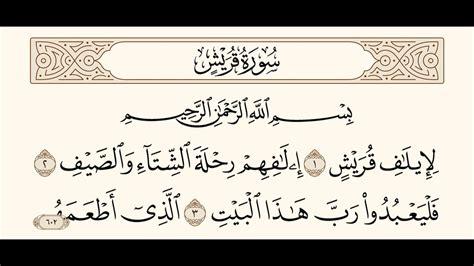 سُورَةُ قُرَيْشٍ
بِسْمِ ٱللَّهِ ٱلرَّحْمَٰنِ ٱلرَّحِيمِ
لِإِيلَٰفِ قُرَيْشٍ ١ إِۦلَٰفِهِمْ رِحْلَةَ ٱلشِّتَآءِ وَٱلصَّيْفِ ٢
فَلْيَعْبُدُوا۟ رَبَّ هَٰذَا ٱلْبَيْتِ ٣ ٱلَّذِىٓ أَطْعَمَهُم
٦٠٢